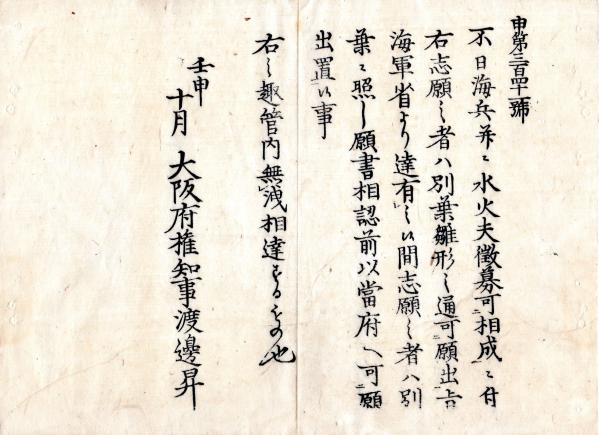 申第三百四十一號
不日海兵并ニ水火夫徴募可相成ニ付
右志願之者ハ別葉雛形之通可願出旨
海軍省より達有之候間志願之者ハ別
葉ニ照し願書相認前以當府へ可願
出置候事
右之趣管内無洩相達するもの也
壬申
十月 大阪府権知事渡邊昇